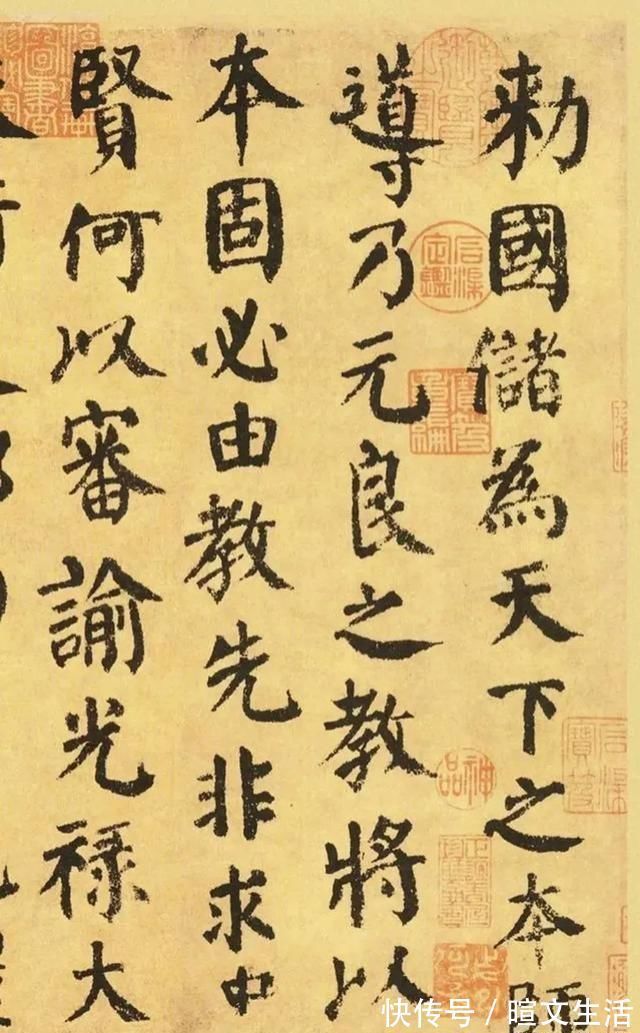 勅國儲為天下之本師
導乃元良之教將以
本固必由教先非求中
賢何以審諭光祿大
神品
快传号/暄文生活